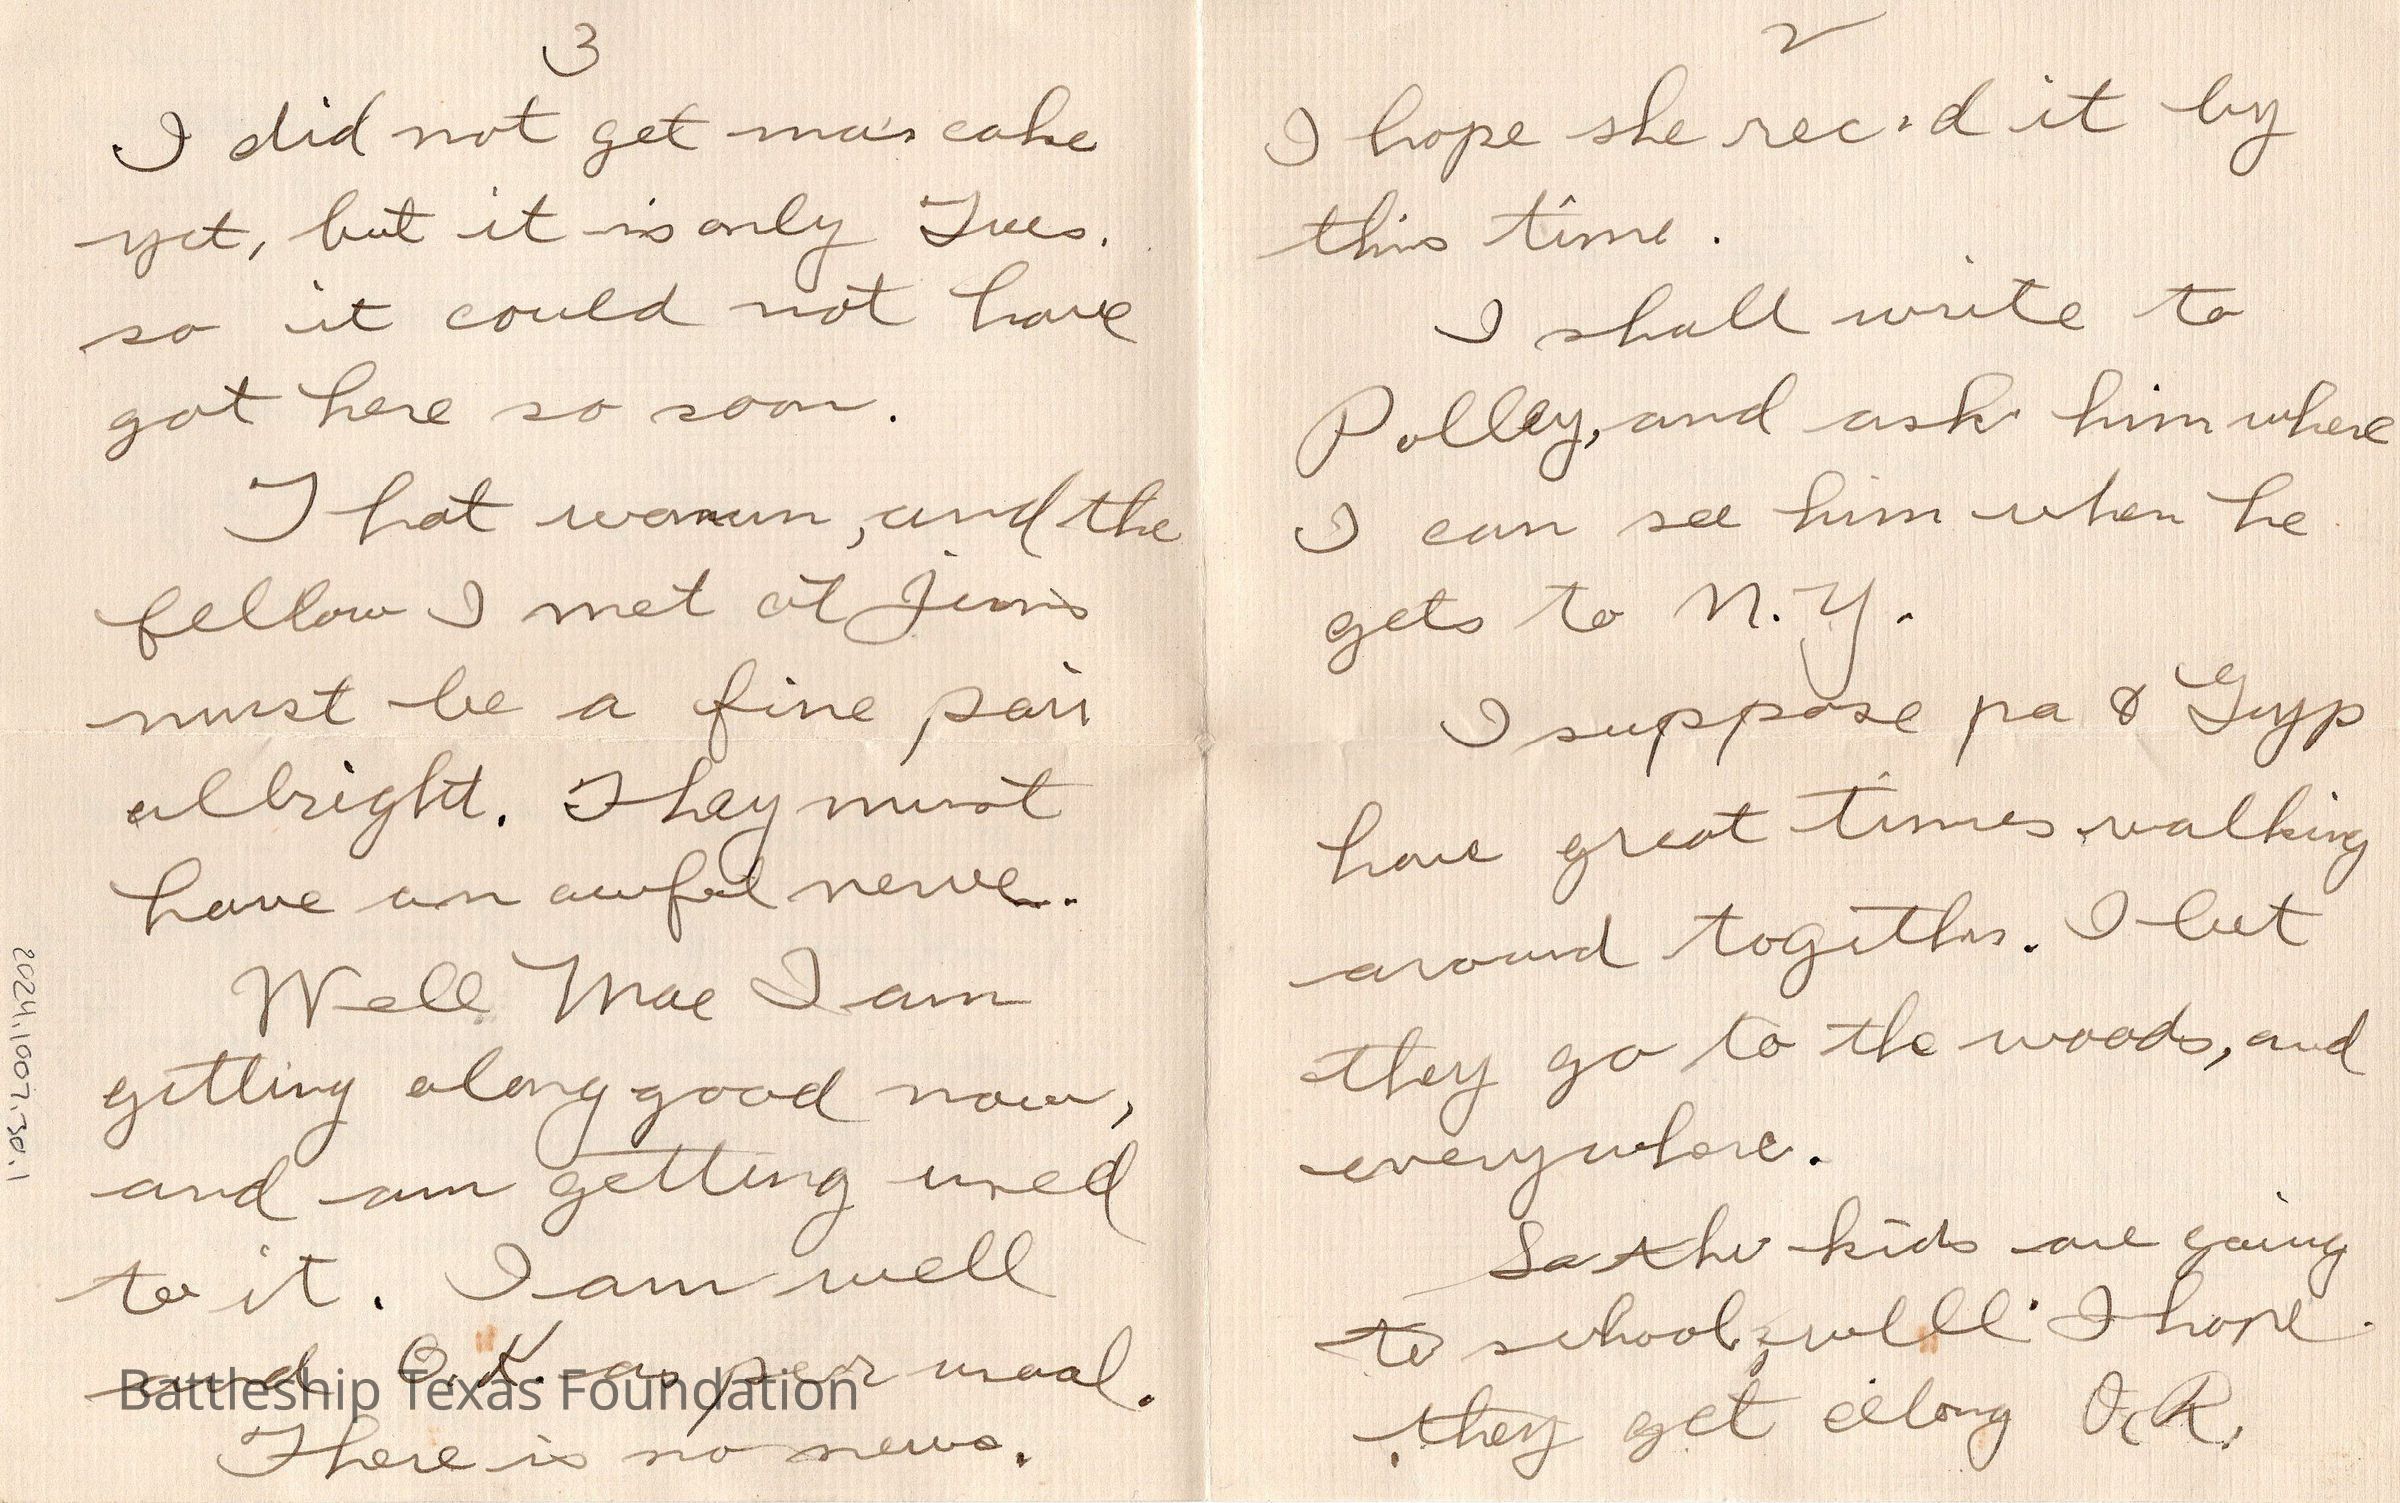 3
I did not get ma's cake
yet, but it is only Tues.
so it could not have
got here so soon.
That woman, and the
fellow I met at Jim's
must be a fine pair
allright. They must
have an awful nerve.
Well Mae I am
getting along good now,
and am getting used
to it. I am well
and O.K. as per usual.
There is no news.
2
I hope she rec'd it by
this time.
I shall write to
Polley, and ask him where
I can see him when he
gets to N.Y.
I suppose pa & Gyp
have great times walking
around together. I bet
they go to the woods, and
everywhere.
So the kids are going
to school, well I hope
they get along O.K.
2024.1007.30.1
Battleship Texas Foundation